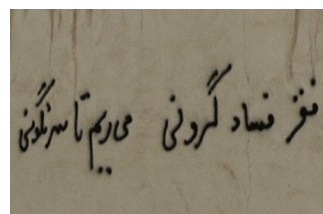 فقر فساد گرونی میریم تا سرنگونی